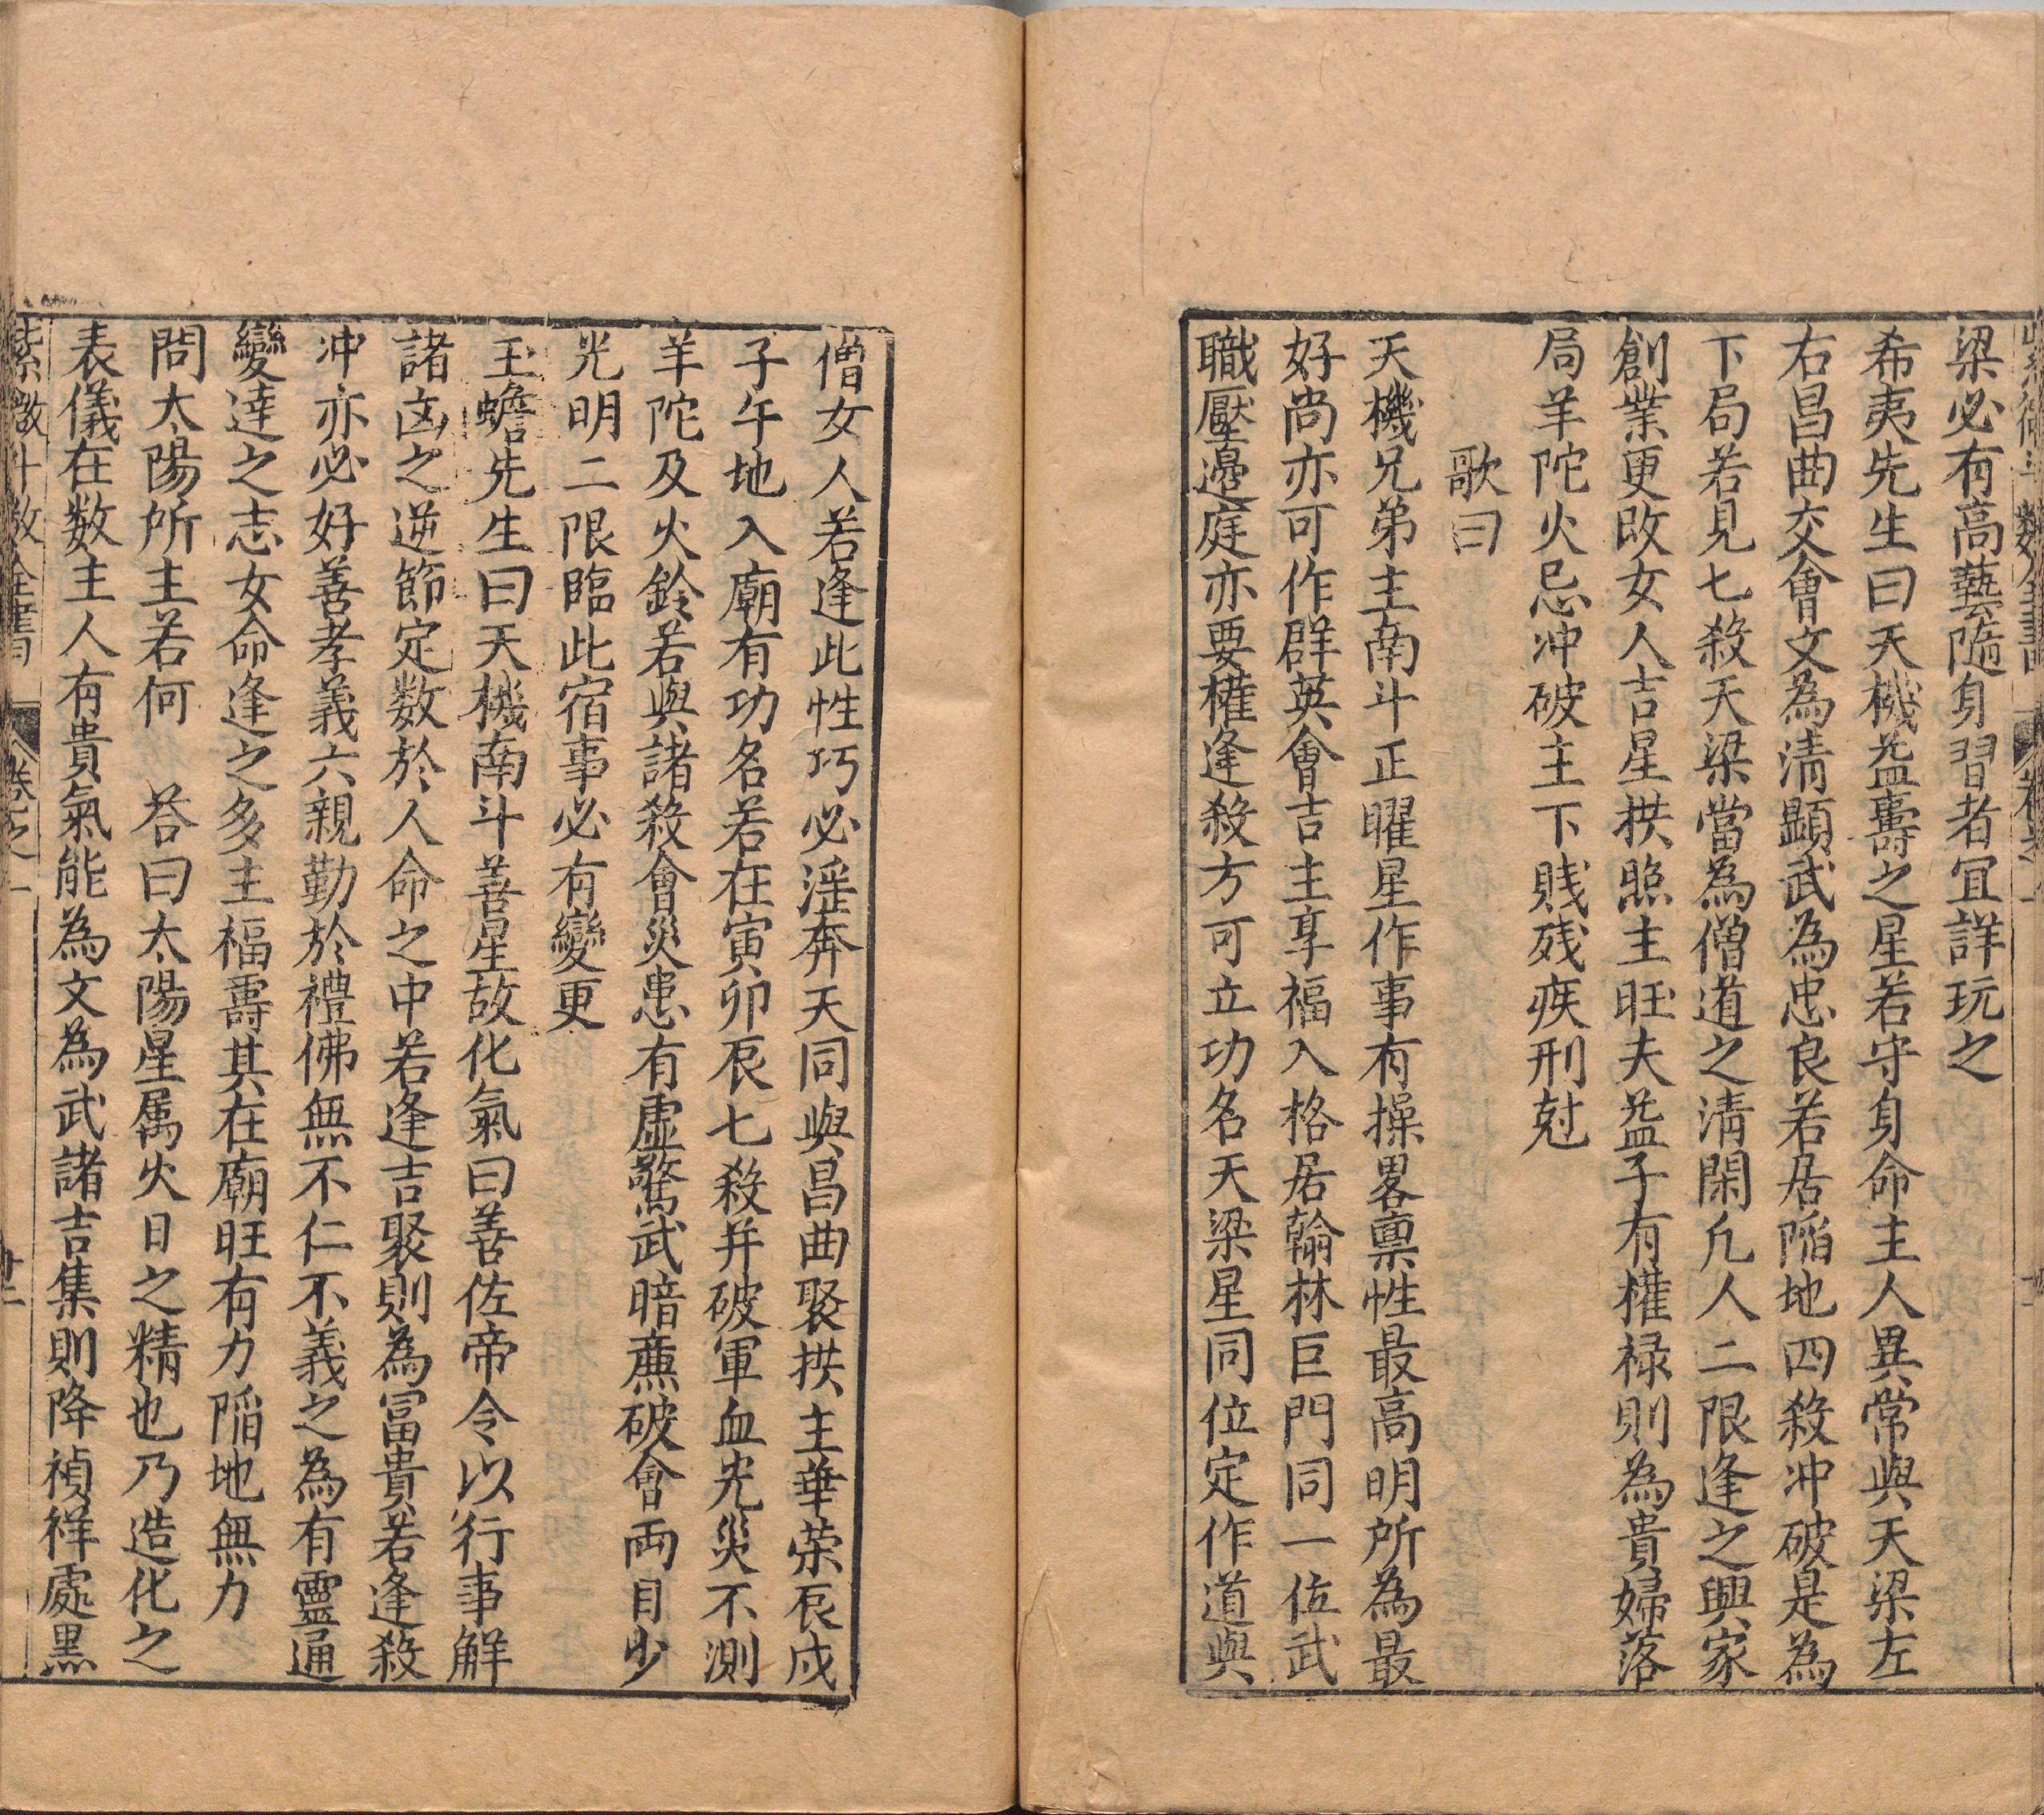 梁必有高藝隨身習者宜詳玩之
希夷先生曰天機益壽之星若守身命主人異常與天梁左
右昌曲交會文為清顯武為忠良若居陷地四殺冲破是為
下局若見七殺天梁當為僧道之清閑凡人二限逢之興家
創業更改女人吉星拱照主旺夫益子有權禄則為貴婦落
局羊陀火忌冲破主下賎残疾刑尅
歌曰
天機兄弟主南斗正曜星作事有操畧稟性最高明所為最
好尚亦可作群英會吉主享福入格居翰林巨門同一位武
職壓邉庭亦要權逢殺方可立功名天梁星同位定作道與
僧女人若逢此性巧必淫奔天同與昌曲聚拱主華荣辰戌
子午地入廟有功名若在寅卯辰七殺并破軍血光災不測
羊陀及火鈴若與諸殺會災患有虛驚武暗廉破會兩目少
光明二限臨此宿事必有變更
玉蟾先生曰天機南斗善星故化氣曰善佐帝令以行事解
諸凶之逆節定数於人命之中若逢吉聚則為冨貴若逢殺
冲亦必好善孝義六親勤於禮佛無不仁不義之為有靈通
變達之志女命逢之多主福壽其在廟旺有力陷地無力
問太陽所主若何　荅曰太陽星属火日之精也乃造化之
表儀在数主人有貴氣能為文為武諸吉集則降禎祥處黑
紫微斗数全書　卷之一